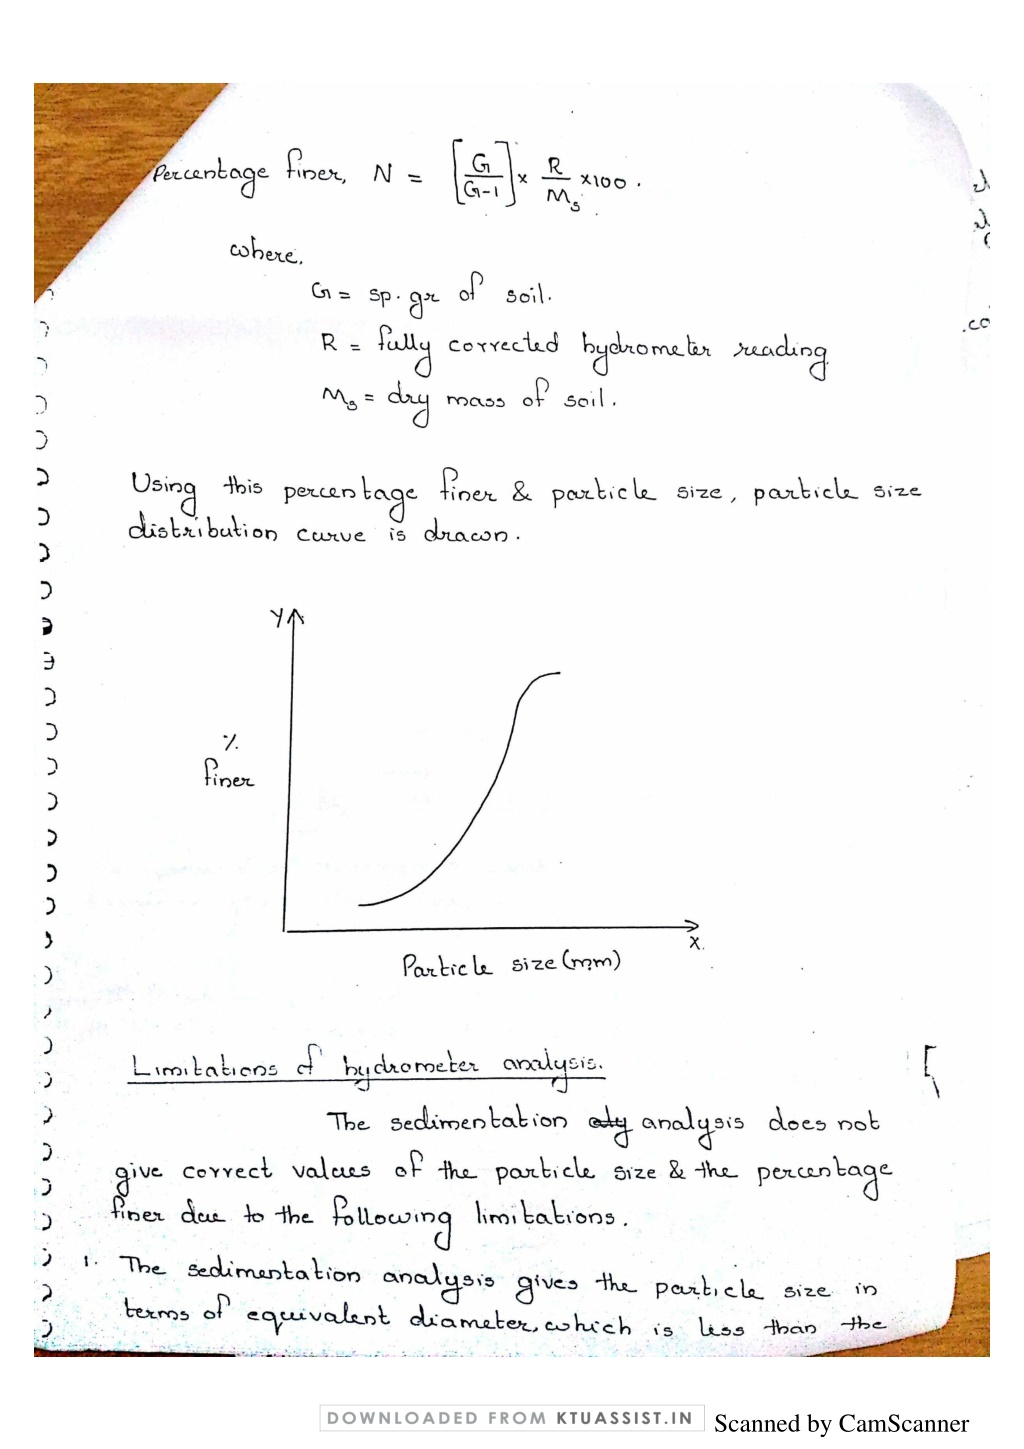 Percentage finer, N = [G/G-1] × R/Ms ×100.
where,
G = sp. gr of soil.
R = fully corrected hydrometer reading.
Ms = dry mass of soil.
Using this percentage finer & particle size, particle size
distribution curve is drawn.
Y
%
finer
X.
Particle size (mm)
Limitations of hydrometer analysis.
The sedimentation analysis does not
give correct values of the particle size & the percentage
finer due to the following limitations.
1. The sedimentation analysis gives the particle size in
terms of equivalent diameter, which is less than the
.co
DOWNLOADED FROM KTUASSIST.IN
Scanned by CamScanner